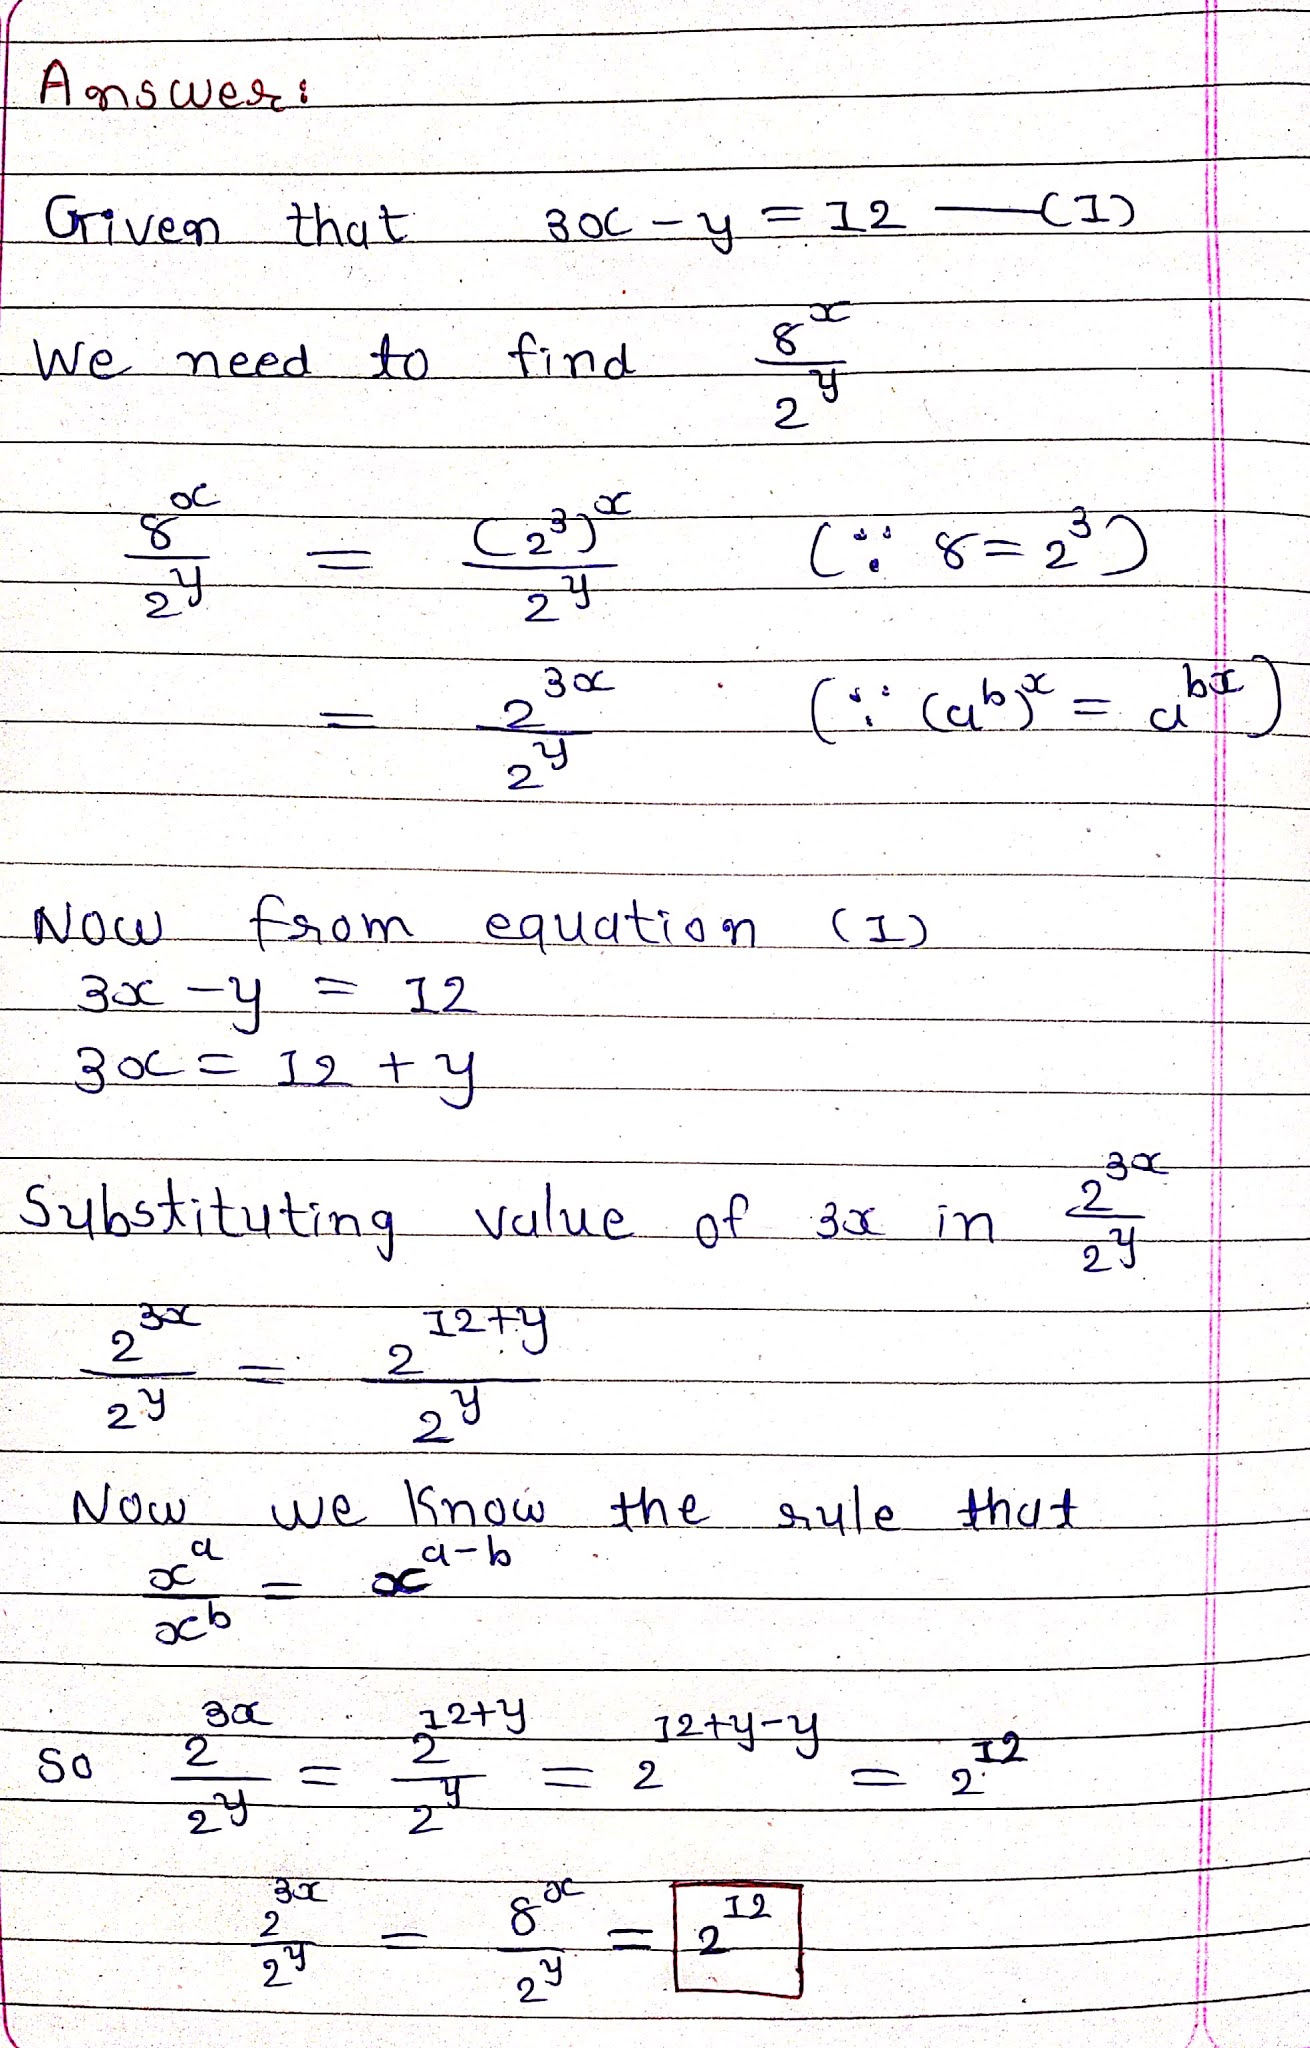 Answer:
Given that 3x - y = 12 —(1)
We need to find 8^x / 2^y
8^x / 2^y = (2^3)^x / 2^y (∵ 8 = 2^3)
= 2^3x / 2^y (∵ (a^b)^x = a^bx)
Now from equation (1)
3x - y = 12
3x = 12 + y
Substituting value of 3x in 2^3x / 2^y
2^3x / 2^y = 2^12+y / 2^y
Now we know the rule that
x^a / x^b = x^a-b
So 2^3x / 2^y = 2^12+y / 2^y = 2^12+y-y = 2^12
2^3x / 2^y = 8^x / 2^y = 2^12